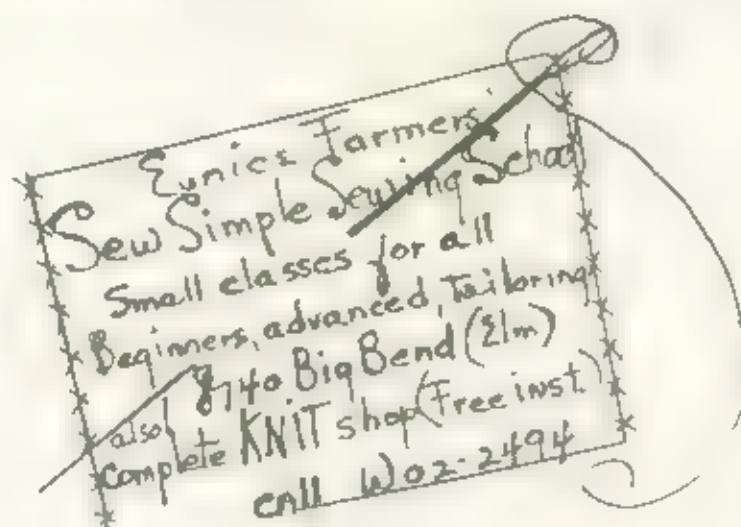 Eunice Farmers'
Sew Simple Sewing School
Small classes for all
Beginners, advanced, Tailoring
8740 Big Bend (Elm)
also
complete KNIT shop (Free inst.)
call WO2-2494